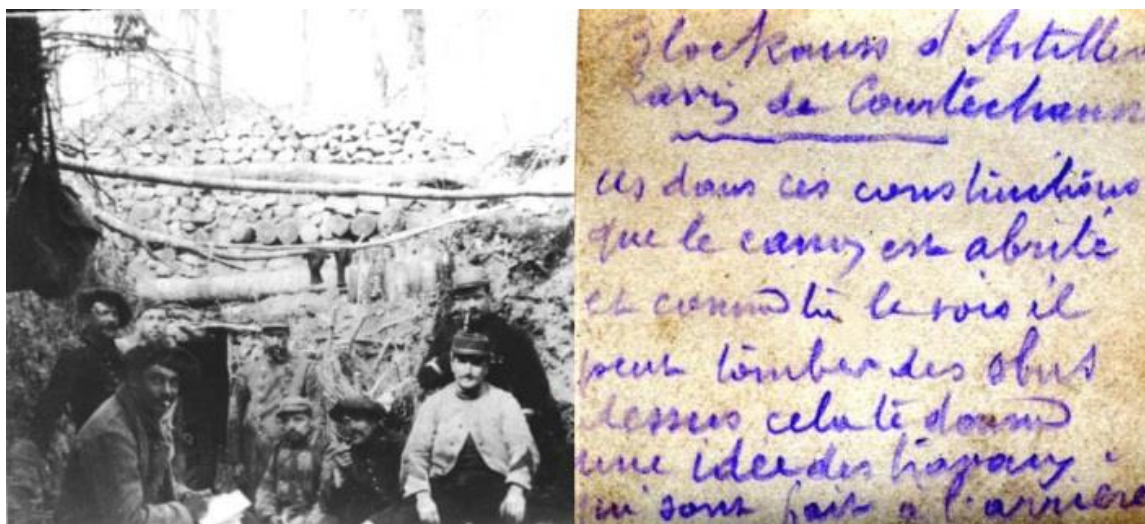 Blockauss d'Artiller
Ravin de Courtéchauss
ces dans ces constructions
que le camp est abrité
et comme tu le vois il
peut tomber des obus
dessus cela te donne
une idée des travaux
qui sont fait à l'arrière